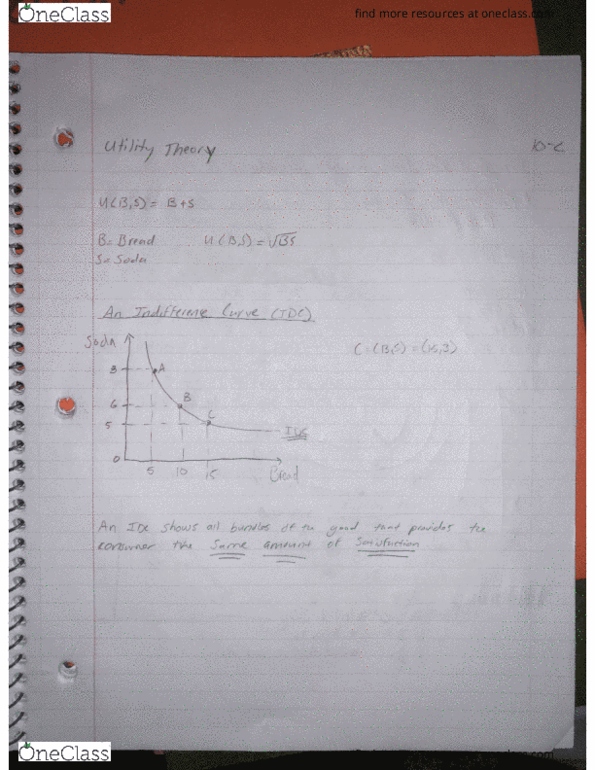 OneClass
find more resources at oneclass.com
Utility Theory
U(B,S) = B+S
B= Bread U(B,S) = √BS
S= Soda
An Indifference Curve (IDC)
Soda
C=(B,S) = (15,3)
8 A
6 B
5 C
IDC
0
5 10 15 Bread
An IDC shows all bundles of the good that provides the
consumer the Same amount of Satisfaction
OneClass
oneclass.com